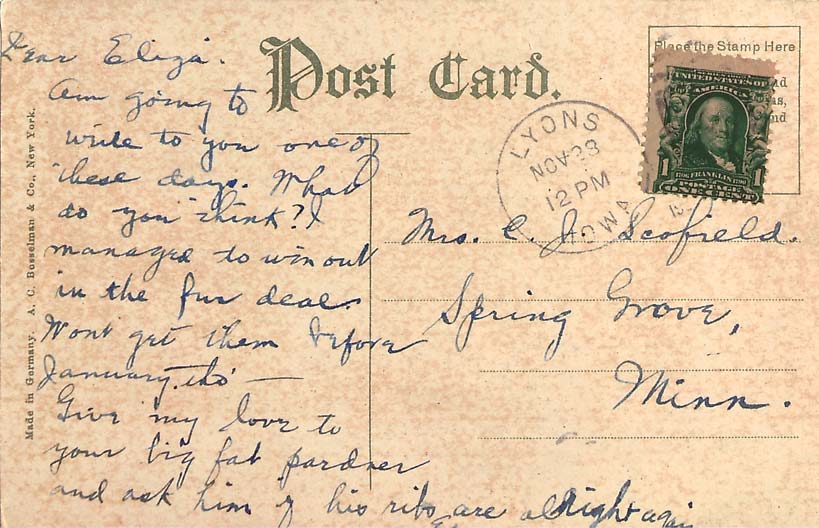 Dear Eliza.
Am going to
write to you one of
these days. What
do you think? I
managed to win out
in the fur deal.
Wont get them before
January. tho' —
Give my love to
your big fat pardner
and ask him if his ribs are alright again
Post Card.
Place the Stamp Here
UNITED STATES OF
AMERICA
1 1706 FRANKLIN 1790 1
POSTAGE
ONE CENT
LYONS
NOV 23
12 PM
IOWA
Mrs. C. J. Scofield.
Spring Grove,
Minn.
Made in Germany. A. C. Bosselman & Co., New York.